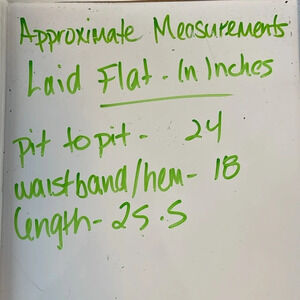 Approximate Measurements
Laid Flat - In Inches
pit to pit - 24
waistband/hem - 18
length - 25.5